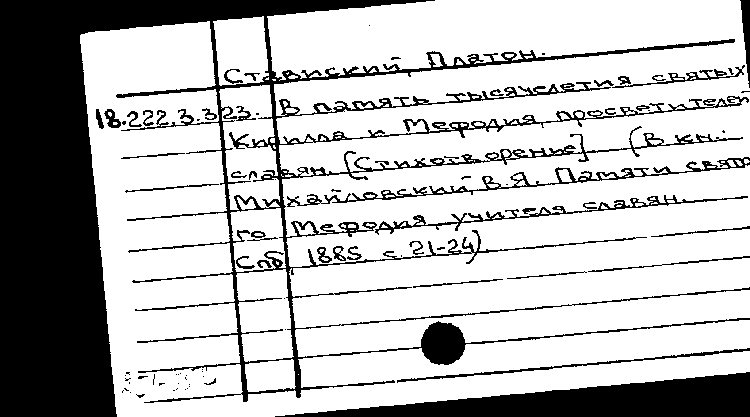 Стависский, Платон.
18.222.3.323. В память тысячелетия святых
Кирилла и Мефодия, просветителей
славян. [Стихотворенье]. (В кн.:
Михайловский, В.Я. Памяти свято
го Мефодия, учителя славян.
Спб, 1885 с. 21-24).